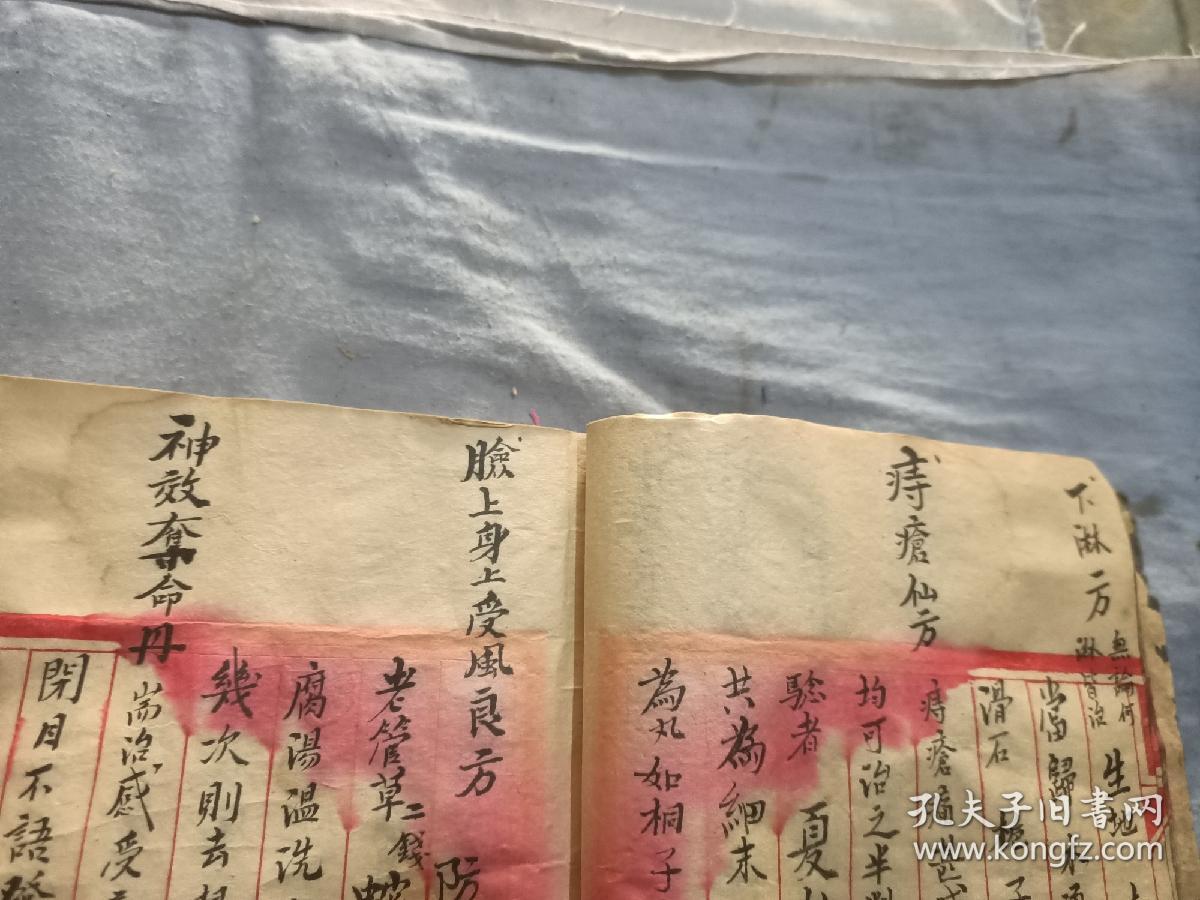 下淋方
無論何
淋皆治
生地
當歸
滑石
痔瘡仙方
痔瘡
均可治之半
驗者
夏
共為細末
為丸如桐子
臉上身上受風良方
防
老管草二錢
腐湯温洗
幾次則去根
神效奪命丹
耑治感受
閉目不語發
孔夫子旧书网
www.kongfz.com